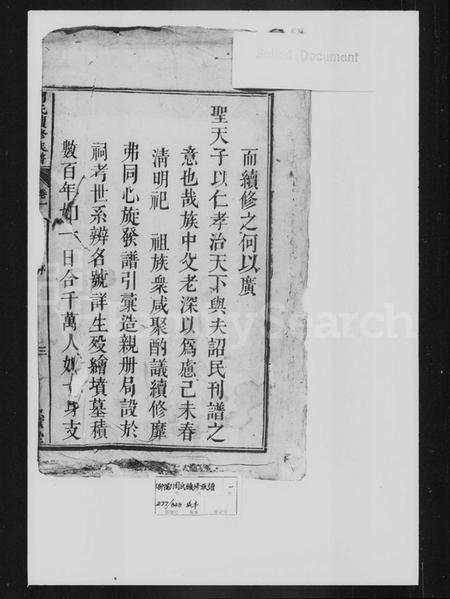 Soiled Document
而續修之何以廣
聖天子以仁孝治天下與夫詔民刊譜之
意也哉族中父老深以爲慮己未春
清明祀 祖族衆咸聚酌議續修靡
弗同心旋發譜引彙造親册局設於
祠考世系辨名號詳生殁繪墳墓積
數百年如一日合千萬人如一身支
氏續修族譜
卷一
三
FamilySearch
周氏續修族譜 一